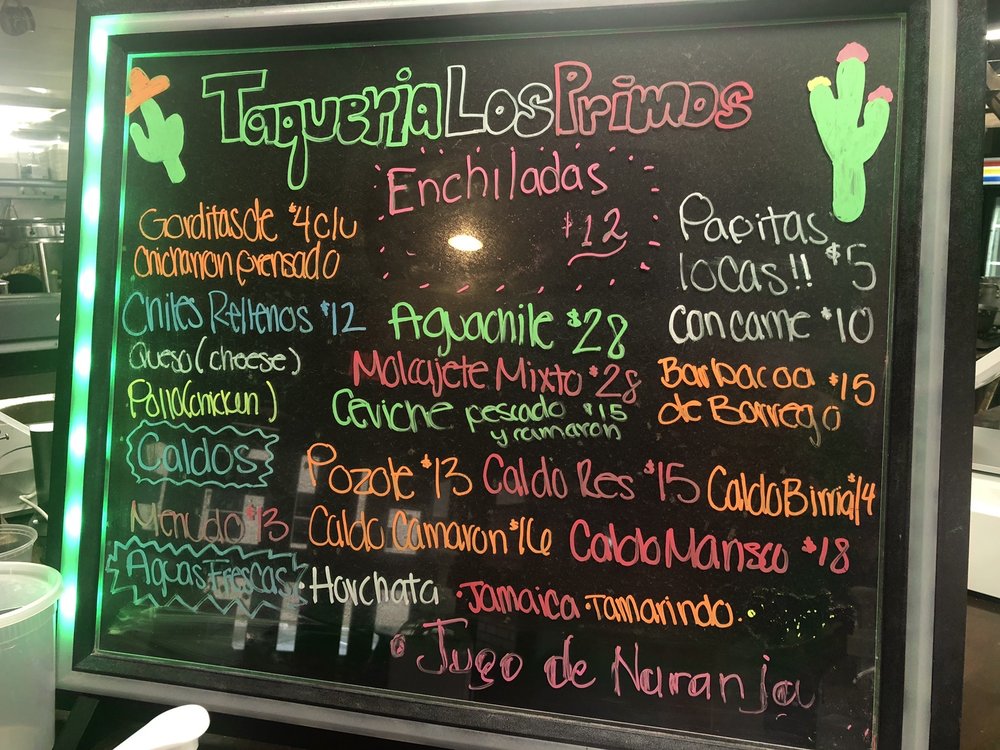 Taqueria Los Primos
Enchiladas
$12
Gorditas de $4 c/u
chicharron prensado
Papitas
locas!! $5
con carne $10
Chiles Rellenos $12
Queso (cheese)
Pollo (chickun)
Aguachile $28
Molcajete Mixto $28
Ceviche pescado $15
y camaron
Barbacoa $15
de Borrego
Caldos
Pozole $13
Caldo Res $15
Caldo Birria $14
Menudo $13
Caldo Camaron $16
Caldo Marisco $18
Aguas Frescas
· Horchata · Jamaica · Tamarindo ·
· Jugo de Naranja